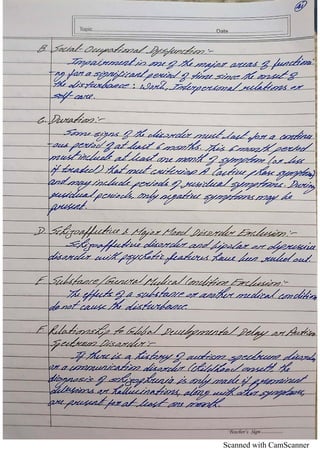 41
Topic
Date
B. Social Occupational Dysfunction :-
Impairment in one of the major areas of function-
-ing for a significant period of time since the onset of
the disturbance : Work, Interpersonal relations or
self-care.
C. Duration :-
Some signs of the disorder must last for a contin-
-ous period of at least 6 months. This 6 month period
must include at least one month of symptoms (or less
if treated) that met criterion A (active phase symptoms)
and may include periods of residual symptoms. During
residual periods, only negative symptoms may be
present.
D. Schizoaffective & Major Mood Disorder Exclusion :-
Schizoaffective disorder and bipolar or depressive
disorder with psychotic features have been ruled out.
E. Substance / General Medical Condition Exclusion :-
The effects of a substance or another medical condition
do not cause the disturbance.
F. Relationship to Global Developmental Delay or Autism
Spectrum Disorder :-
If there is a history of autism spectrum disorder
or a communication disorder (childhood onset) the
diagnosis of schizophrenia is only made if prominent
delusions or hallucinations, along with other symptoms,
are present for at least one month.
Teacher's Sign
Scanned with CamScanner